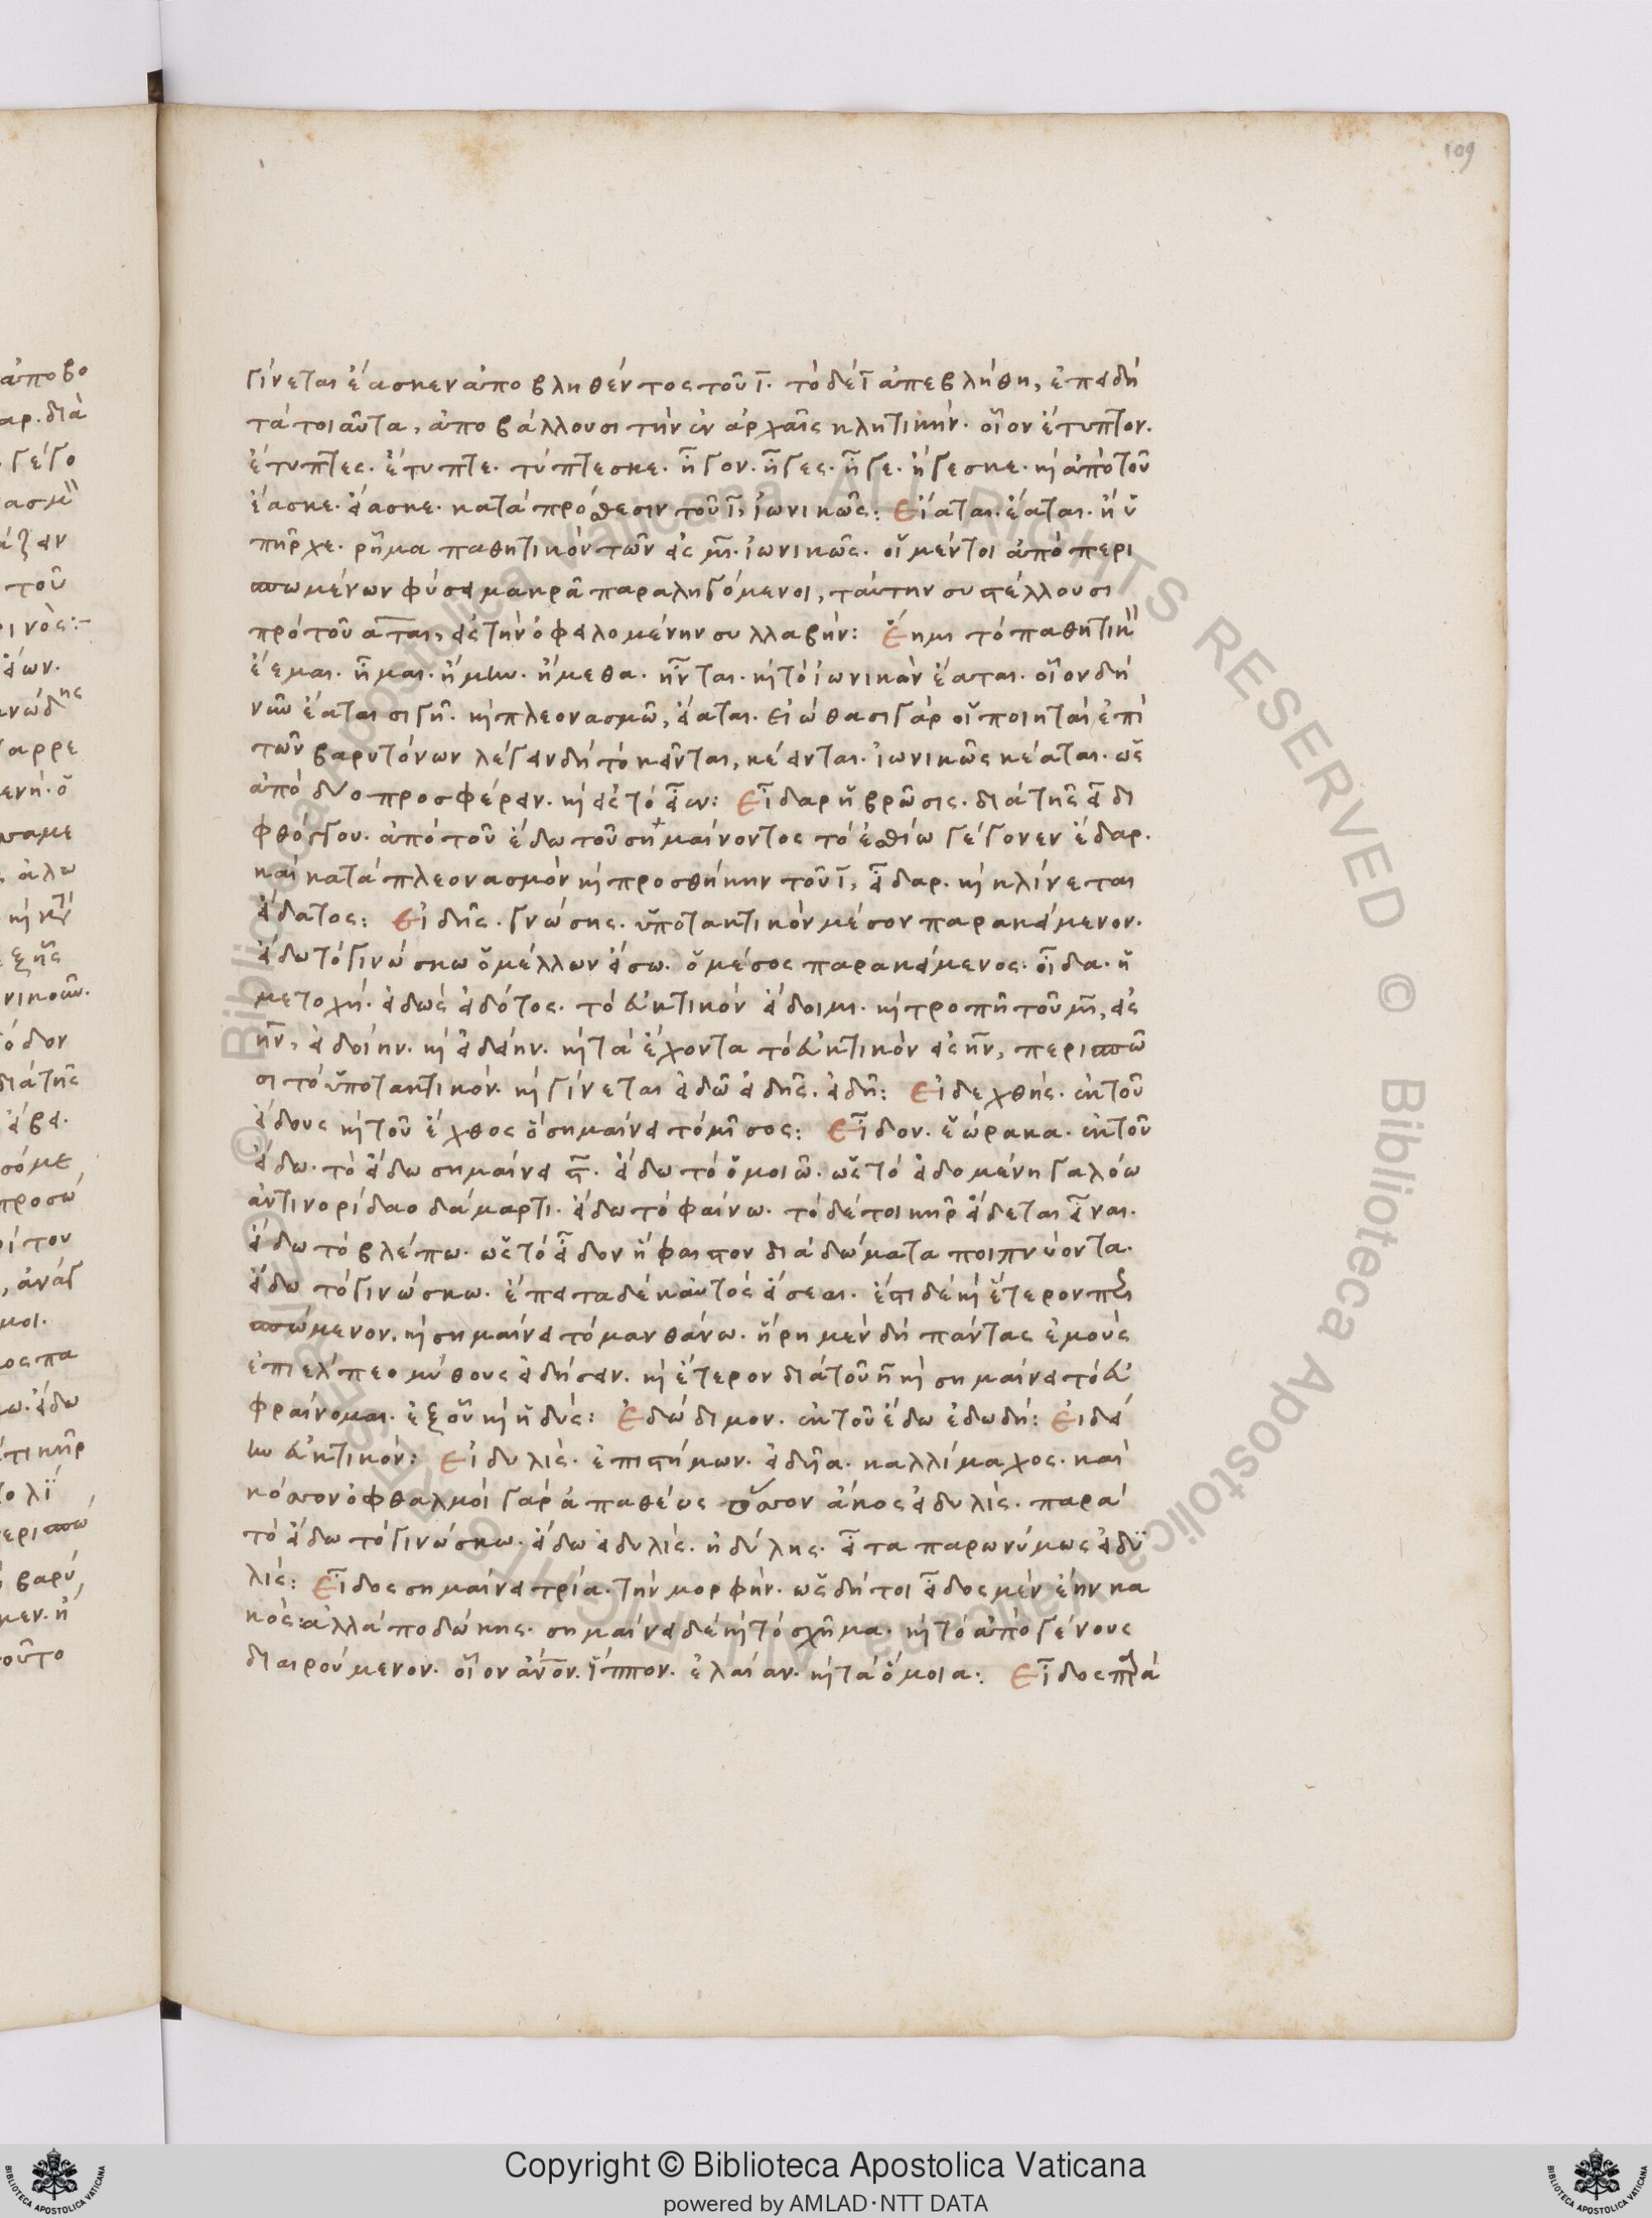 109
γίνεται ἔασκεν ἀποβληθέντος τοῦ ϊ. τὸ δὲ ϊ ἀπεβλήθη, ἐπειδὴ
τὰ τοιαῦτα, ἀποβάλλουσι τὴν ἐν ἀρχαῖς κλητικήν. οἷον ἔτυπτον.
ἔτυπτες. ἔτυπτε. τύπτεσκε. ἦγον. ἦγες. ἦγε. ἤγεσκε. κὶ ἀπὸ τοῦ
ἔασκε. εἴασκε. κατὰ πρόθεσιν τοῦ ϊ, ἰωνικῶς: Εἵαται. ἕαται. ἢ ὑ
πῆρχε. ῥῆμα παθητικὸν τῶν εἰς μι. ἰωνικῶς. οἱ μέντοι ἀπὸ περι
σπωμένων φύσει μακρᾶ παραληγόμενοι, ταύτην συστέλλουσι
πρὸ τοῦ αται, εἰς τὴν ὀφειλομένην συλλαβήν: Ἕημι τὸ παθητικ
ἕεμαι. ἧμαι. ἥμην. ἥμεθα. ἧνται. κὶ τὸ ἰωνικὸν ἕαται. οἷον δὴ
νῶ ἕαται σιγῆ. κὶ πλεονασμῶ, εἵαται. εἰώθασι γὰρ οἱ ποιηταὶ ἐπὶ
τῶν βαρυτόνων λέγειν δὴ τὸ κεῖνται, κέανται. ἰωνικῶς κέαται. ὡς
ἀπὸ δύο προσφέρειν. κὶ εἰς τὸ εἶεν: Εἶδαρ ἡ βρῶσις. διὰ τῆς ει δι
φθόγγου. ἀπὸ τοῦ ἔδω τοῦ σημαίνοντος τὸ ἐσθίω γέγονεν ἔδαρ.
καὶ κατὰ πλεονασμὸν κὶ προσθήκην τοῦ ϊ, εἶδαρ. κὶ κλίνεται
εἴδατος: Εἰδῆς. γνώσης. ὑποτακτικὸν μέσον παρακείμενον.
εἴδω τὸ γινώσκω ὁ μέλλων εἴσω. ὁ μέσος παρακείμενος. οἶδα. ἡ
μετοχή. εἰδὼς εἰδότος. τὸ εὐκτικὸν εἴδοιμι. κὶ τροπῆ τοῦ μι, εἰς
ην, εἰδοίην. κὶ εἰδείην. κὶ τὰ ἔχοντα τὸ εὐκτικὸν εἰς ην, περισπῶ
σι τὸ ὑποτακτικόν. κὶ γίνεται εἰδῶ εἰδῆς. εἰδῆ: Εἰδεχθής. ἐκ τοῦ
εἴδους κὶ τοῦ ἔχθος ὃ σημαίνει τὸ μῖσος: Εἶδον. ἑώρακα. ἐκ τοῦ
εἴδω. τὸ εἴδω σημαίνει ϛ. εἴδω τὸ ὁμοιῶ. ὡς τὸ εἰδομένη γαλόω
ἀντινορίδαο δάμαρτι. εἴδω τὸ φαίνω. τὸ δέ τοι κῆρ εἴδεται εἶναι.
εἴδω τὸ βλέπω. ὡς τὸ εἶδον ἥφαιστον διὰ δώματα ποιπνύοντα.
εἴδω τὸ γινώσκω. ἔπειτα δὲ καὐτὸς εἴσεαι. ἔστι δὲ κὶ ἕτερον περι
σπώμενον. κὶ σημαίνει τὸ μανθάνω. ἥρη μὲν δὴ πάντας ἐμοὺς
ἐπιέλπεο μύθους εἰδήσειν. κὶ ἕτερον διὰ τοῦ η κὶ σημαίνει τὸ εὐ
φραίνομαι. ἐξ οὗ κὶ ἡδύς: Ἐδώδιμον. ἐκ τοῦ ἔδω ἐδωδή: Εἰδεί
ην εὐκτικόν: Εἰδυλίς. ἐπιστήμων. εἰδῆα. καλλίμαχος. καὶ
κόσπον ὀφθαλμοὶ γὰρ ἀπαθέως οὕσπον ἄκος εἰδυλίς. παρὰ
τὸ εἴδω τὸ γινώσκω. εἴδω εἰδυλίς. ἠδύλης. εἶτα παρωνύμως εἰδυ
λίς: Εἶδος σημαίνει τρία. τὴν μορφήν. ὡς δή τοι εἶδος μὲν ἔην κα
κὸς ἀλλὰ ποδώκης. σημαίνει δὲ κὶ τὸ σχῆμα. κὶ τὸ ἀπὸ γένους
διαιρούμενον. οἷον ἄνον. ἵππον. ἐλαίαν. κὶ τὰ ὅμοια: Εἶδος παρὰ
© Biblioteca Apostolica Vaticana ALL RIGHTS RESERVED
Copyright © Biblioteca Apostolica Vaticana
powered by AMLAD・NTT DATA
BIBLIOTECA APOSTOLICA VATICANA
BIBLIOTECA APOSTOLICA VATICANA